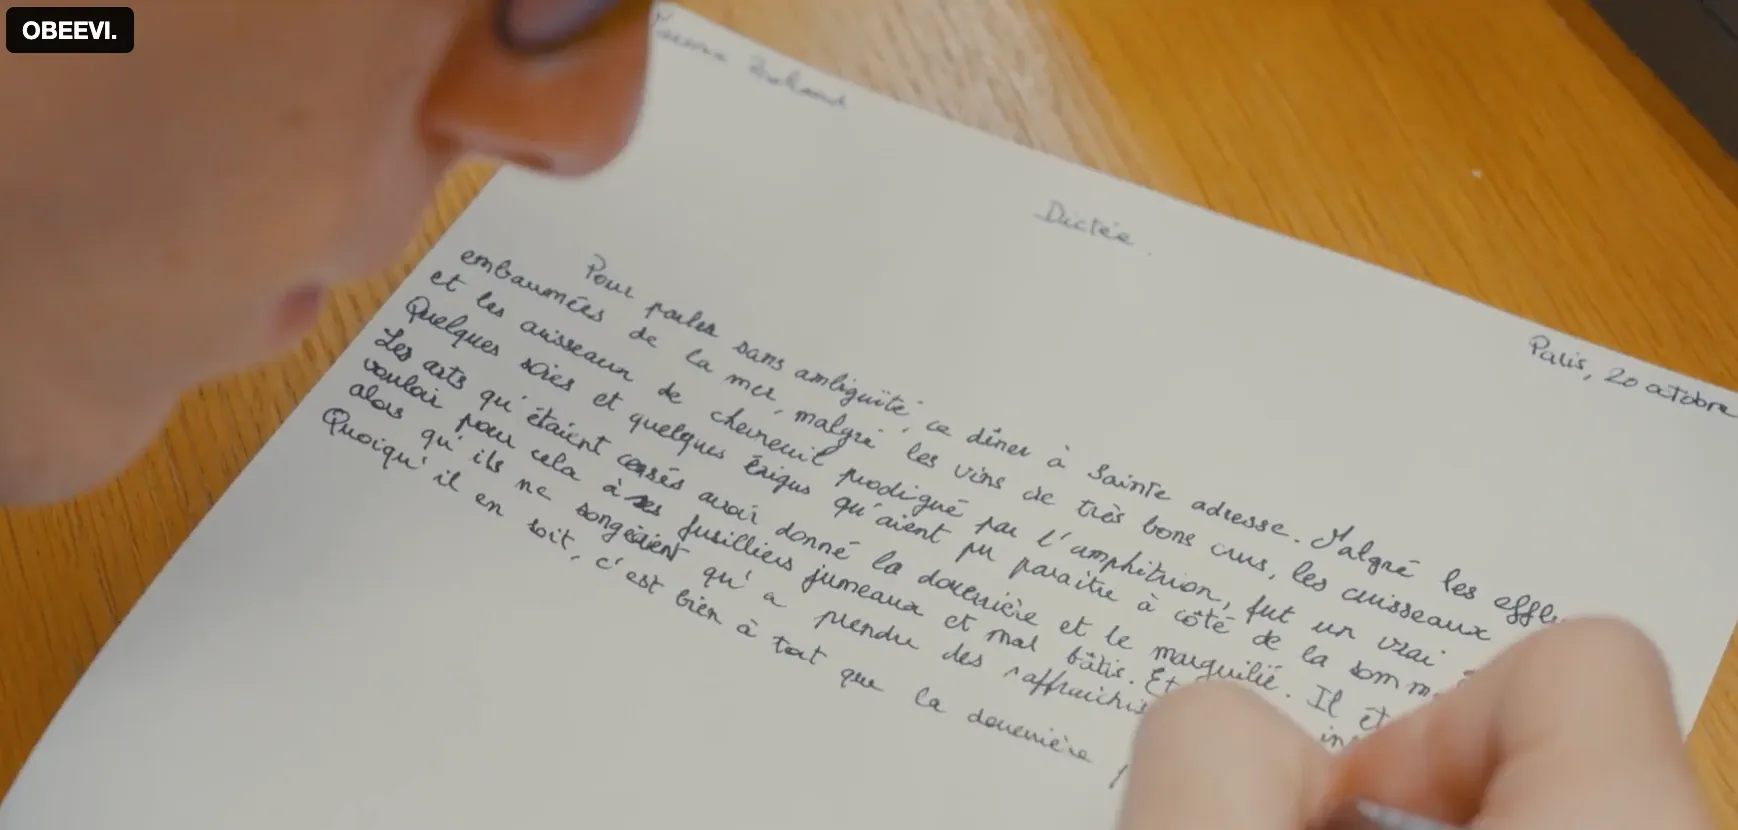 OBEEVI.
Dictée
Paris, 20 octobre
Pour parler sans ambiguïté, ce dîner à Sainte adresse. Malgré les efflu
embaumées de la mer, malgré les vins de très bons crus, les cuisseaux
et les cuisseaux de chevreuil prodigué par l'amphitrion, fut un vrai
Quelques soies et quelques éxigus qu'aient pu paraitre à côté de la somm
Les arts qu'étaient censés avoir donné la douerière et le marguilié. Il ét
vouloir pour cela à ses fusilliers jumeaux et mal bâtis. Et
alors qu'ils ne songeaient qu'a prendre des raffraichis
Quoiqu'il en soit, c'est bien à tort que la douerière